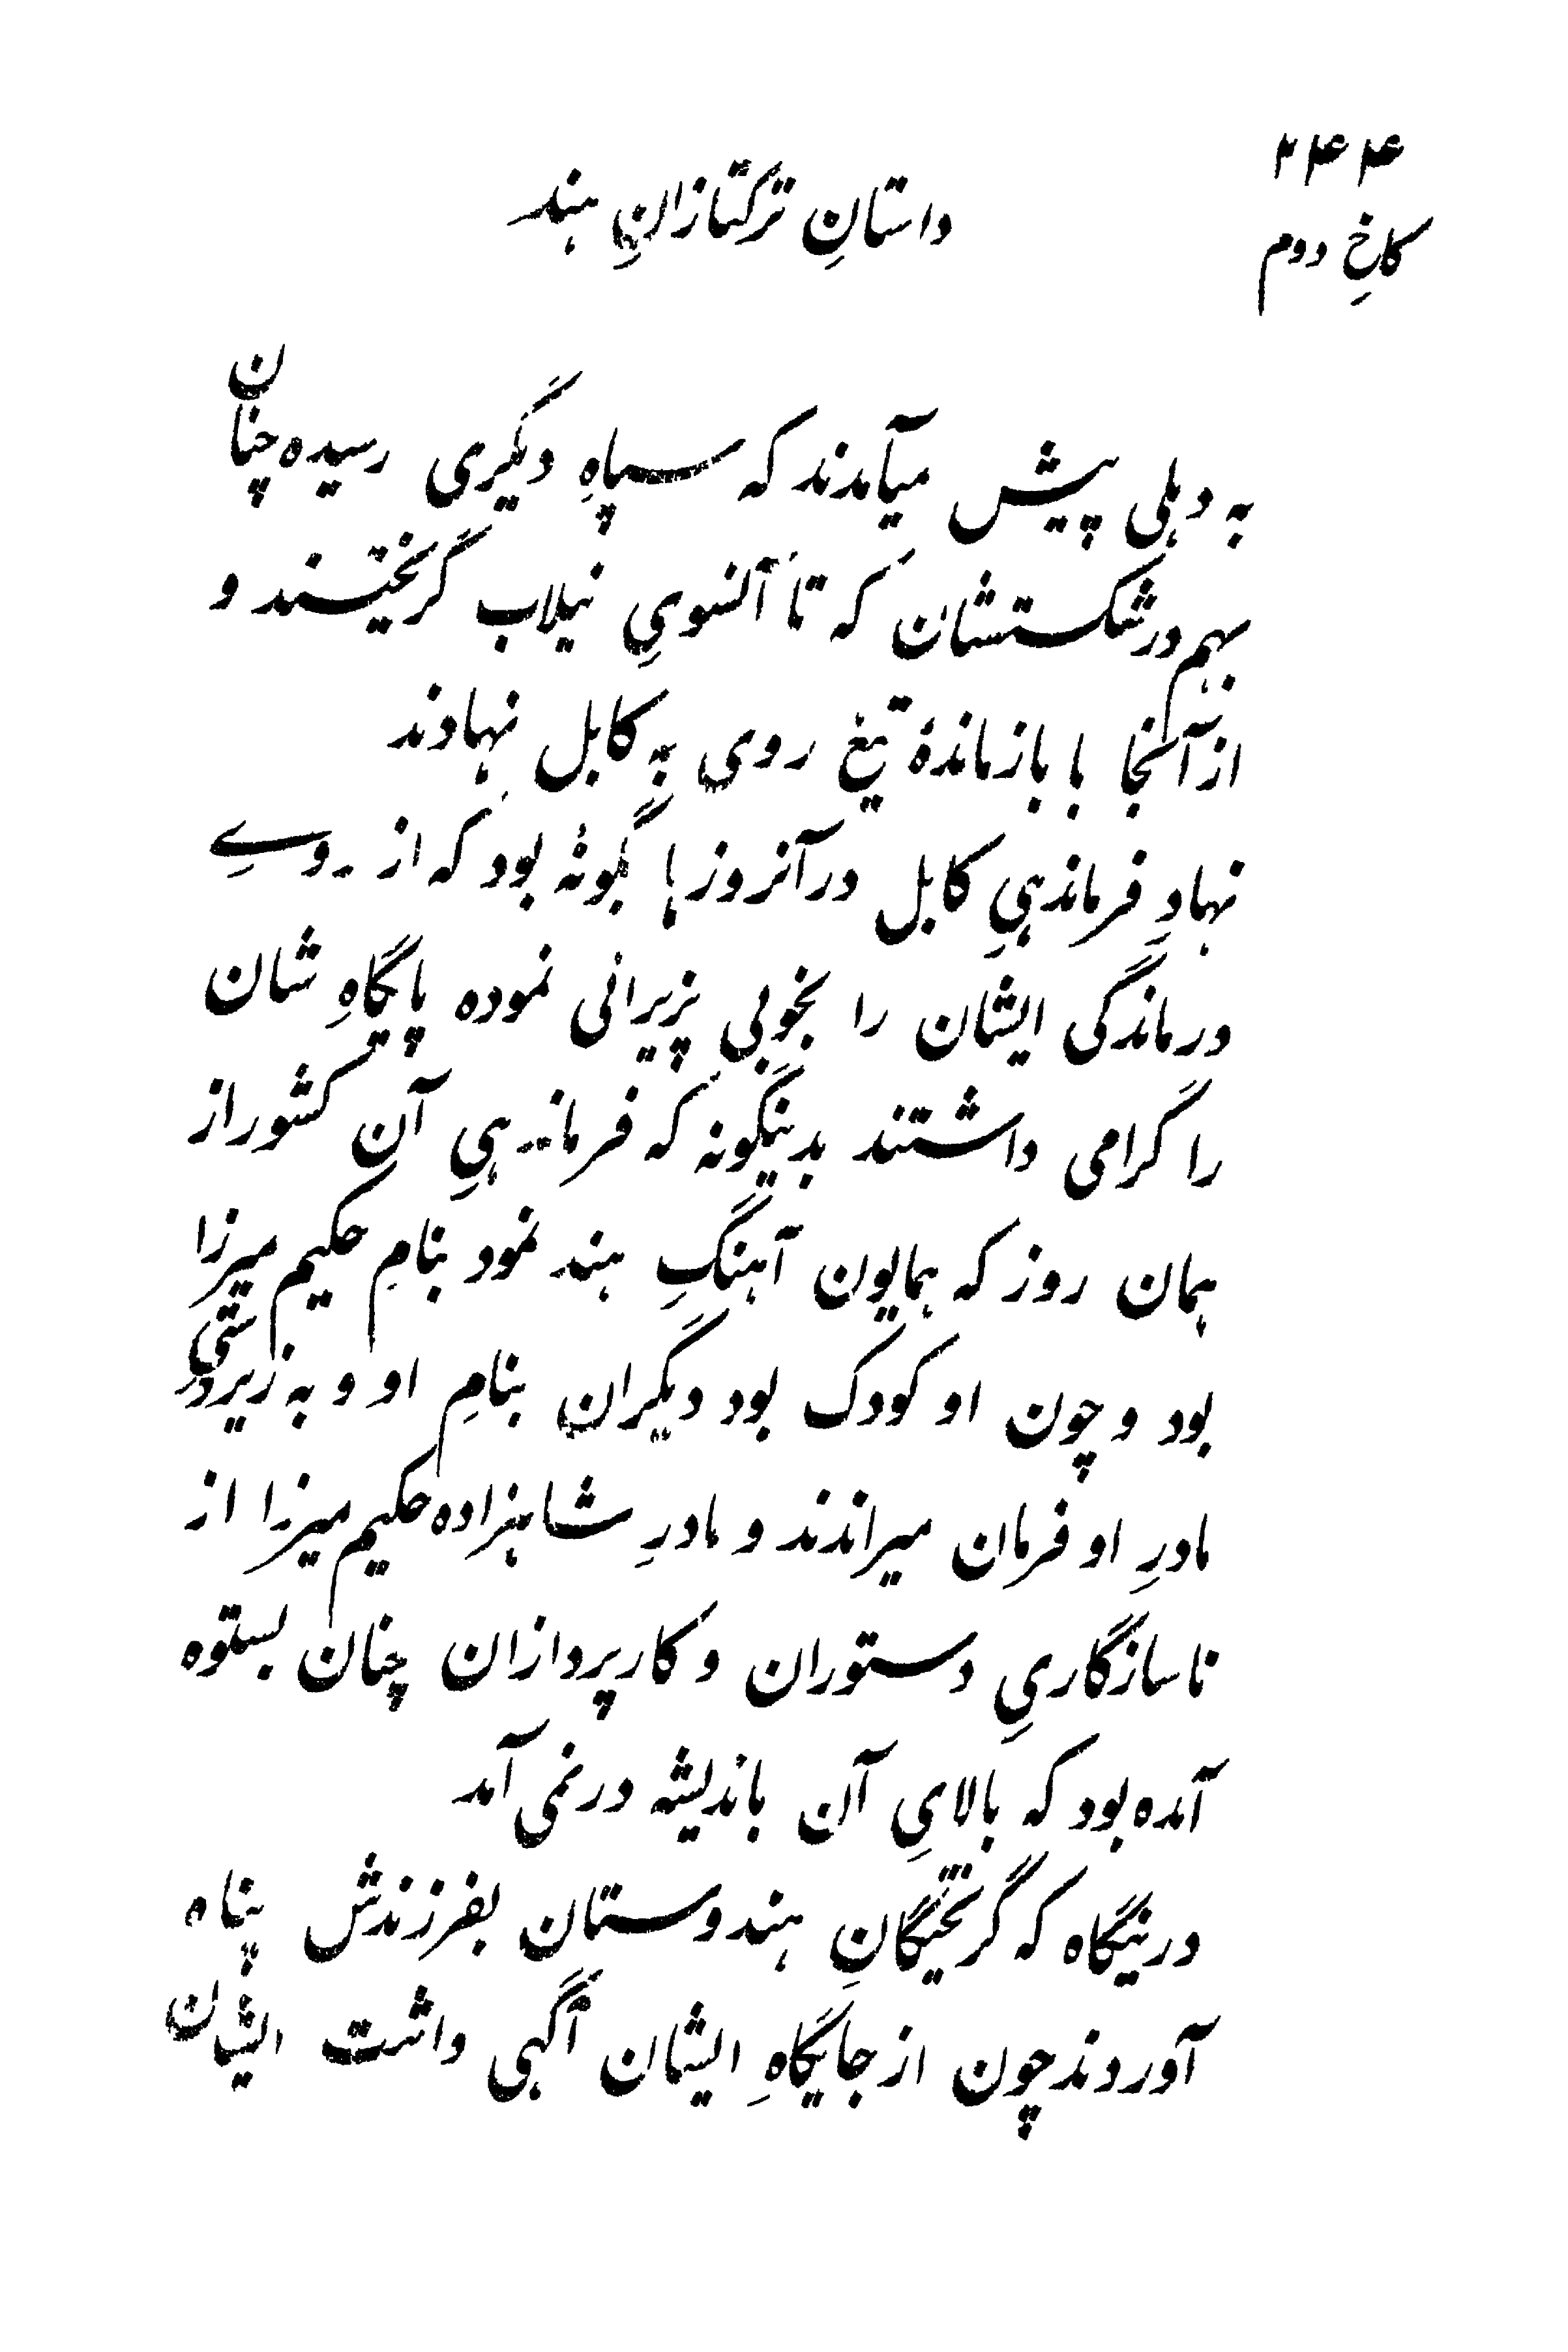 ۲۴۴
داستانِ ترکتازانِ هند
کاخِ دوم
به دهلی پیش میآمدند که سپاهِ دیگری رسیده چنان
بهم درشکستشان که تا آنسویِ نیلاب گریختند و
از آنجا با بازماندهٔ تیغ روی به کابل نهادند
نهادِ فرماندهیِ کابل در آنروزها بگونهٔ بود که از رویِ
درماندگی ایشان را بخوبی پزیرائی نموده پایگاهِ شان
را گرامی داشتند بدینگونه که فرماندهیِ آن کشور از
همان روز که همایون آهنگِ هند نمود بنامِ حکیم میرزا
بود و چون او کودک بود دیگران بنامِ او و به زیردستیِ
مادرِ او فرمان میراندند و مادرِ شاهزاده حکیم میرزا از
ناسازگاریِ دستوران و کارپردازان چنان بستوه
آمده بود که بالایِ آن باندیشه درنمی آمد
درینگاه که گریختگانِ هندوستان بفرزندش پناه
آوردند چون از جایگاهِ ایشان آگهی داشت ایشان